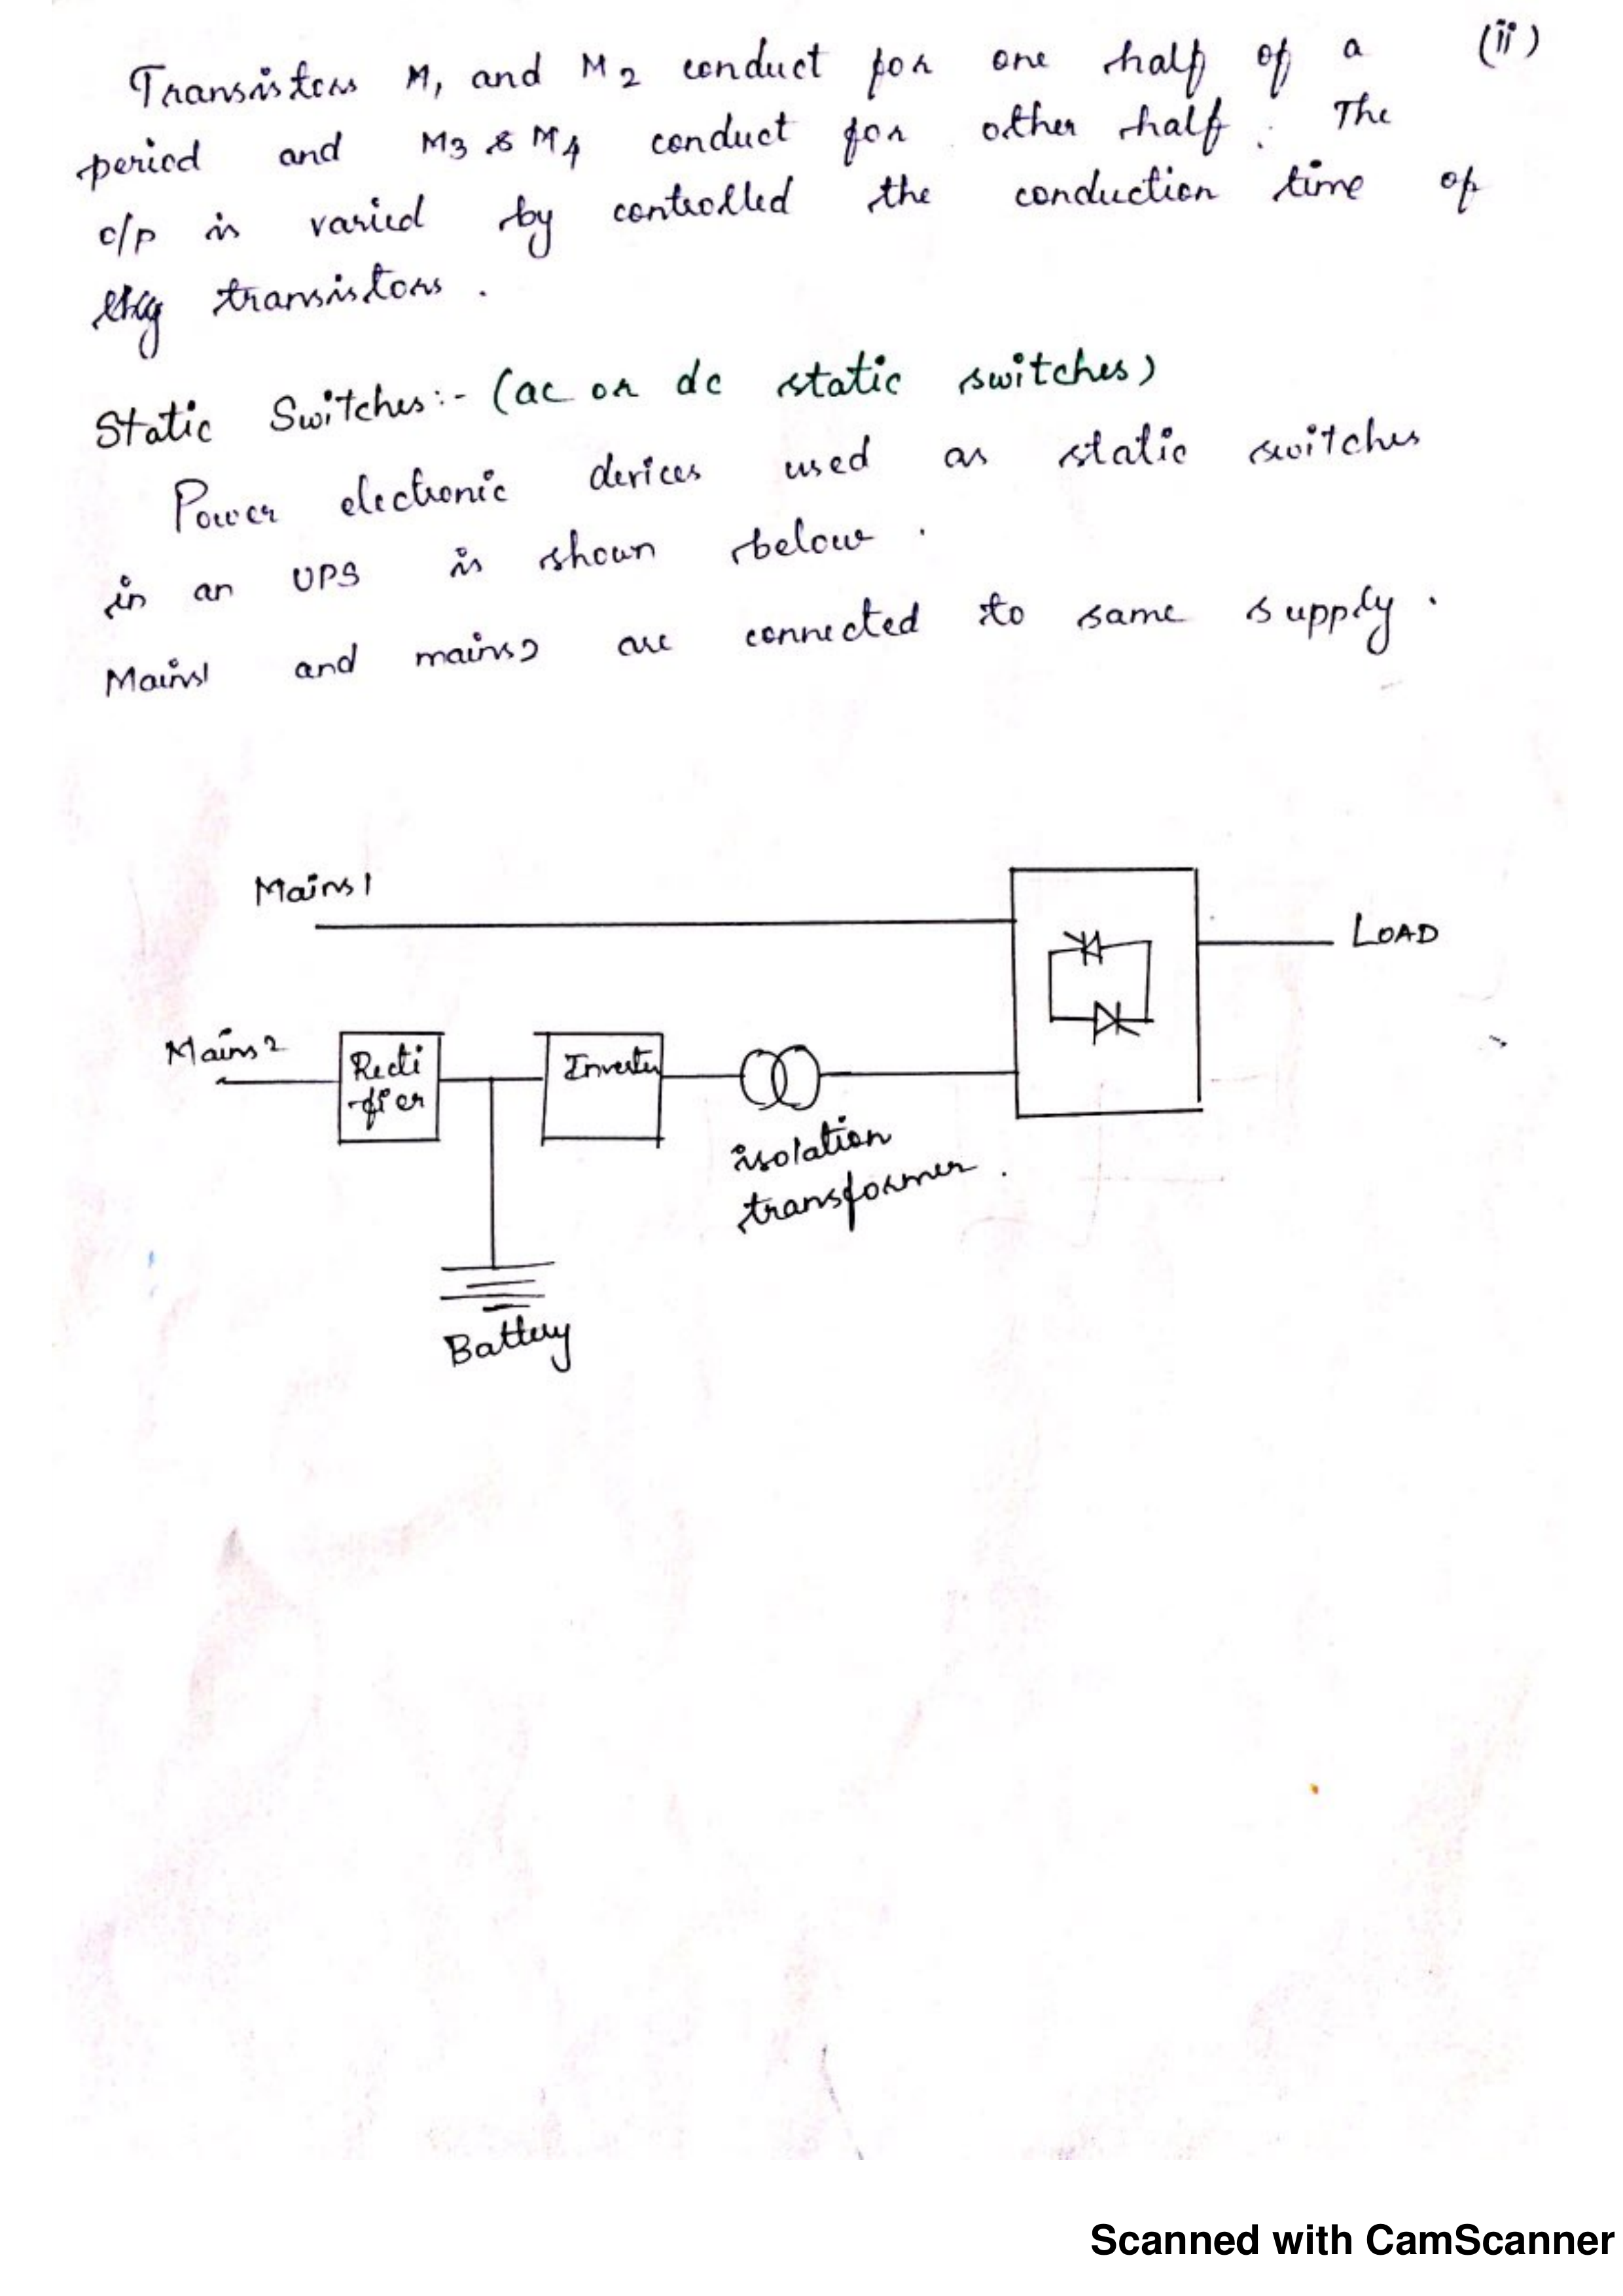 Transistors M1 and M2 conduct for one half of a (ii)
period and M3 & M4 conduct for other half. The
o/p is varied by controlled the conduction time of
transistors.
Static Switches:- (ac or dc static switches)
Power electronic devices used as static switches
in an UPS is shown below.
Mains1 and mains2 are connected to same supply.
Mains1
LOAD
Mains2
Recti
-fier
Inverter
isolation
transformer.
Battery
Scanned with CamScanner